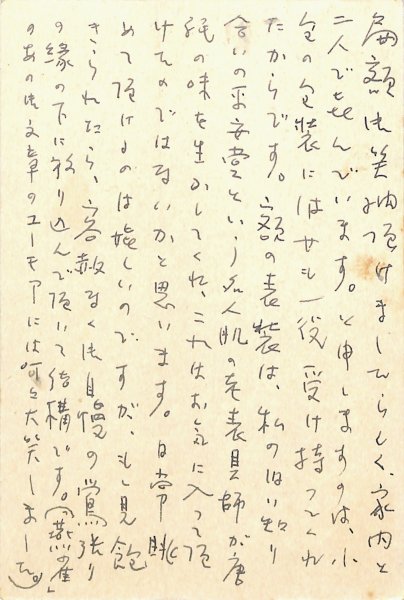 扁額御笑納頂けましたらしく、家内と
二人で喜んでいます。と申しますのは、小
包の包装にはせも一役受け持ってくれ
たからです。額の表装は、私の知り
合いの平安堂という名人肌の老表具師が唐
紙の味を生かしてくれ、これはお気に入って頂
けたのではないかと思います。日常眺
めて頂けるのは嬉しいのですが、もし見飽
きられたら、容赦なく御自慢の鶯張り
の縁の下に放り込んで頂いて結構です。(「燕の雀」
のあの御文章のユーモアには呵々大笑しました。)